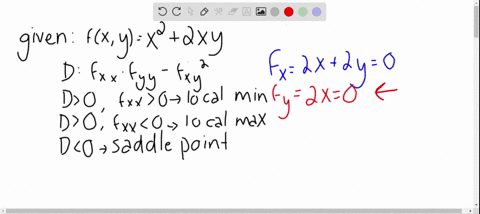 given: f(x,y)=x²+2xy
D: fxx·fyy-fxy²
D>0, fxx>0→local min
D>0, fxx<0→local max
D<0→saddle point
Fx=2x+2y=0
fy=2x=0 ←